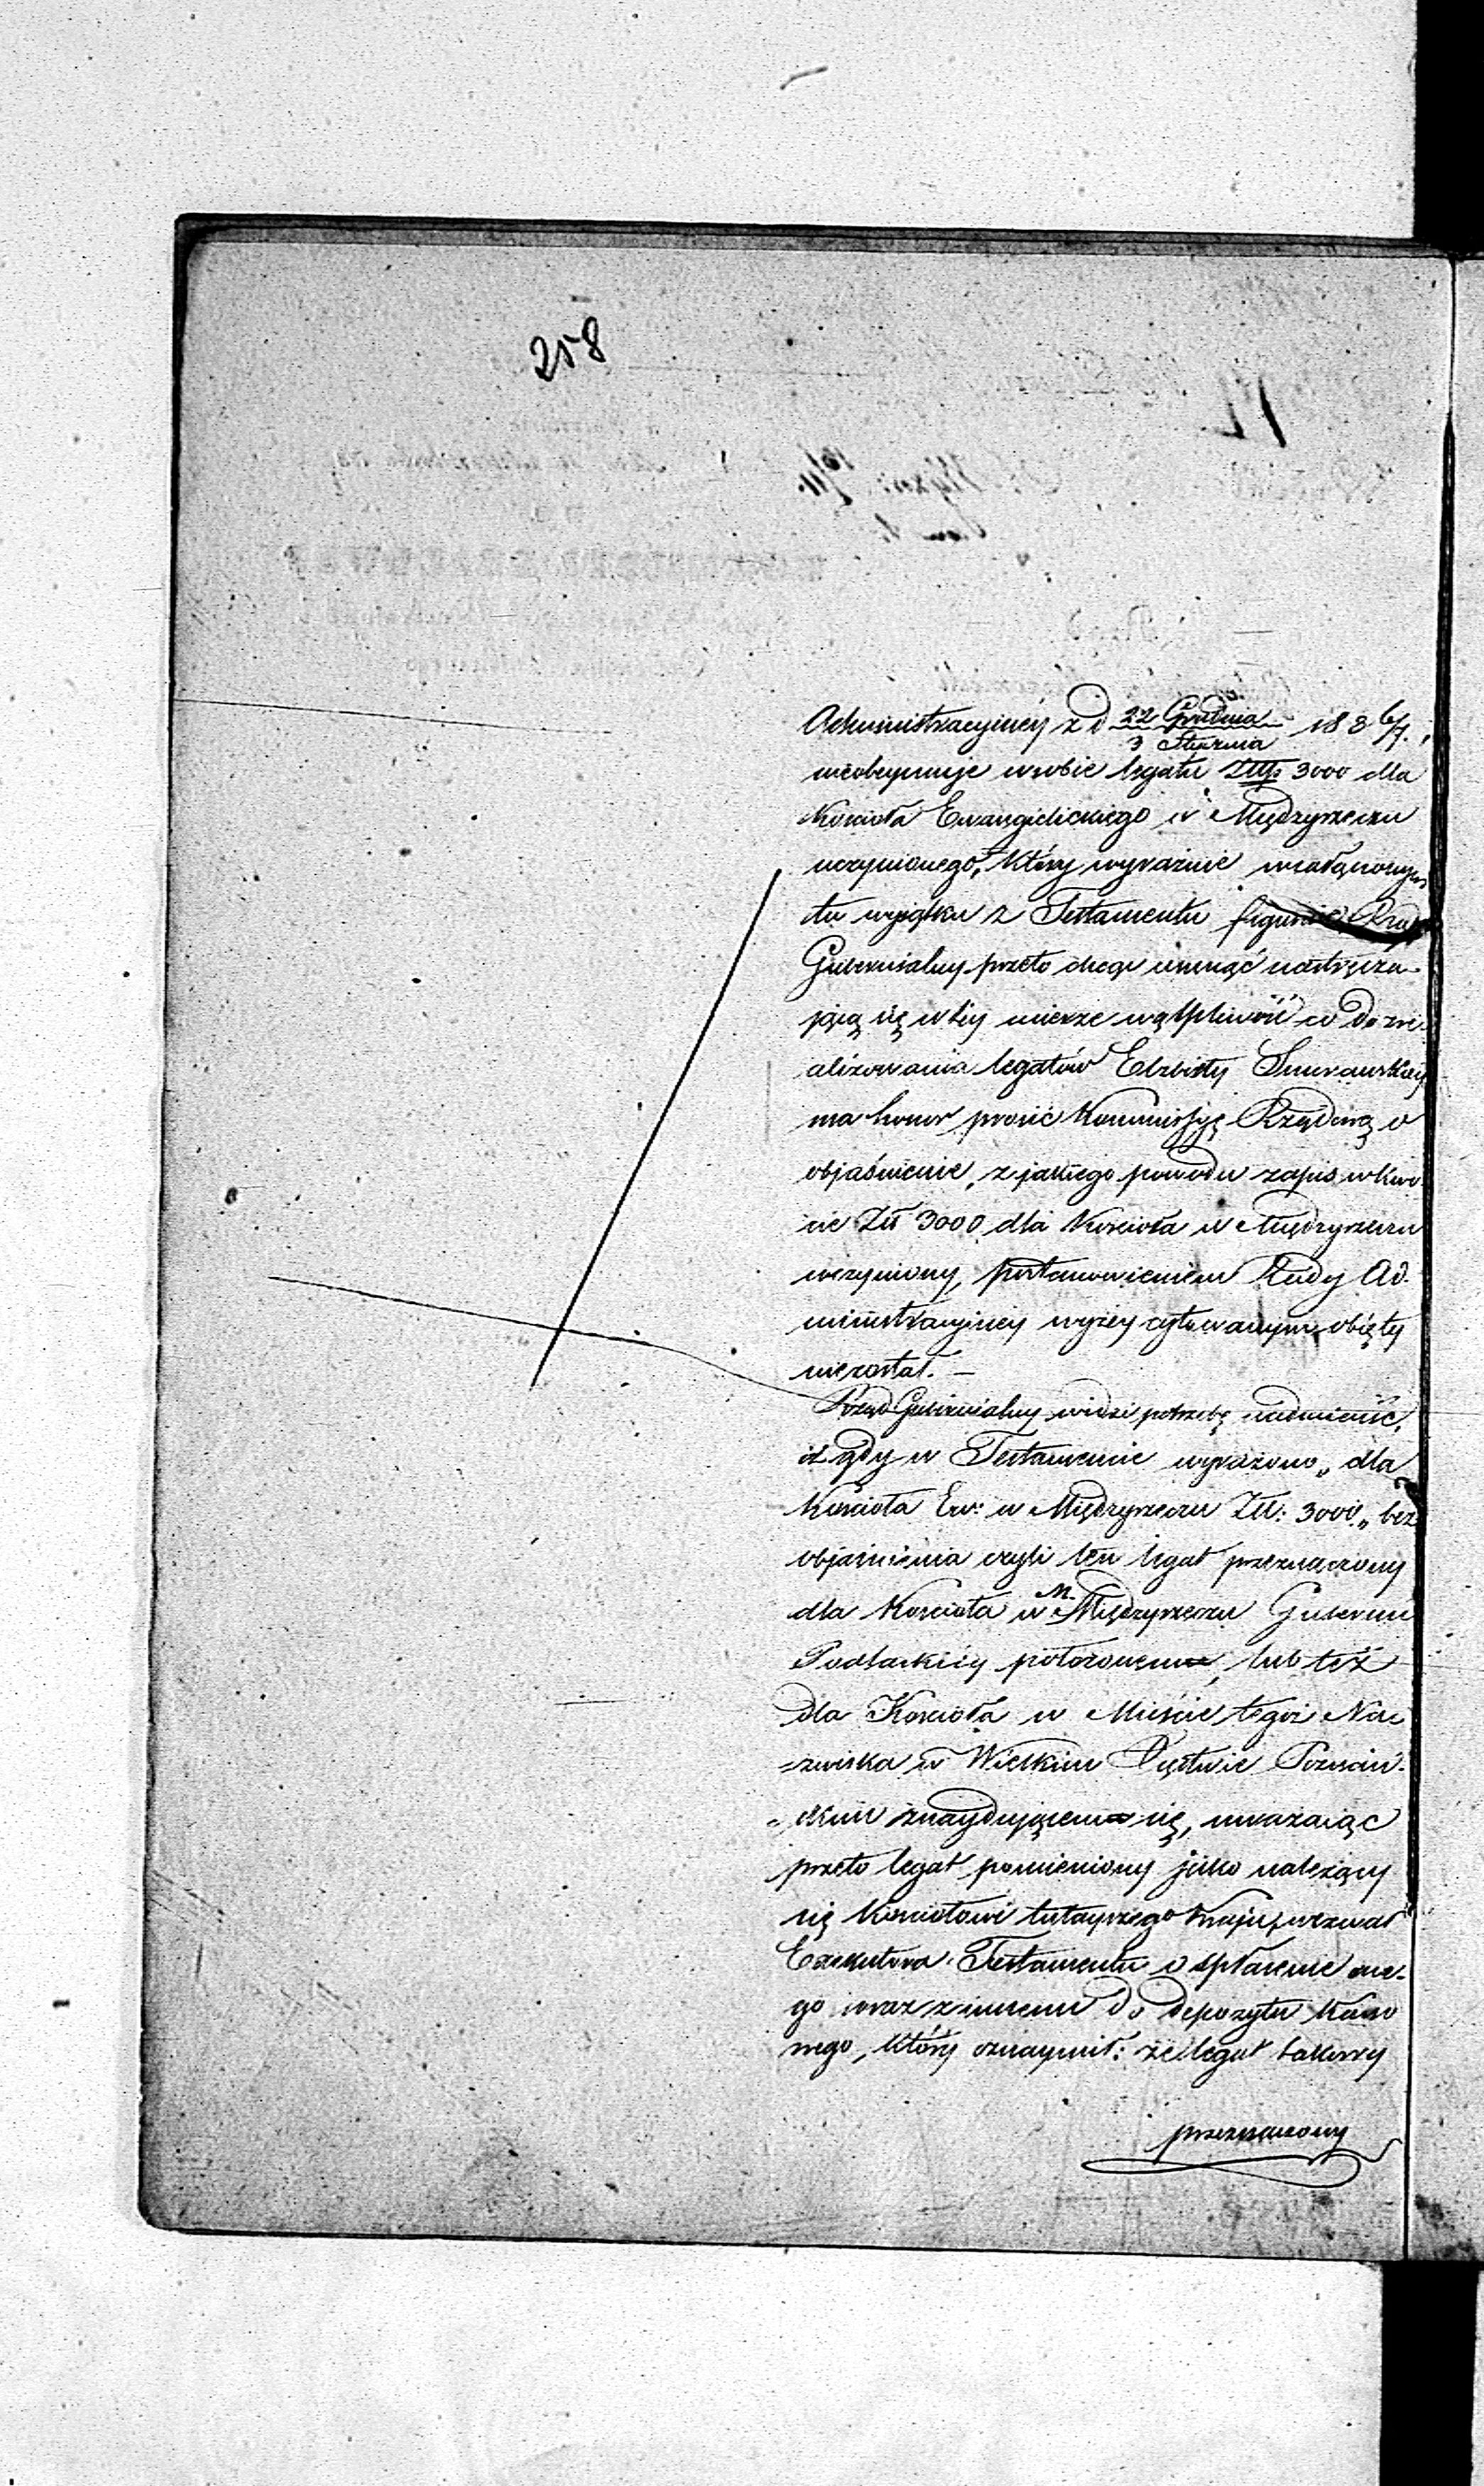 258
Administracyinéy z d 22 Grudnia / 3 Stycznia 183 6/7.,
nieobeymuje wsobie legatu Złtp 3000 dla
Kościoła Ewangielickiego w Międzyrzeczu
uczynionego, który wyraźnie wzałączonym
tu wyiątku z Testamentu figuruie, Rząd
Gubernialny przeto chcąc usunąć nastręcza-
jącą się w tey mierze wątpliwość co do zre-
alizowania legatów Elżbiety
ma honor prosić Kommissyę Rządową o
objaśnienie, z jakiego powodu zapis w kwo
cie Złł 3000 dla Kościoła w Międzyrzeczu
uczyniony, postanowieniem Rady Ad-
ministracyinéy wyżey cytowanym, obięty
niezostał. —
Rząd Gubernialny widzi potrzebę nadmienić,
iż gdy w Testamencie wyrażono „dla
Kościoła Ew: w Międzyrzeczu Złł: 3000„ bez
objaśnienia czyli ten legat przeznaczony
dla Kościoła w M. Międzyrzeczu Gubernii
Podlaskiéy położonem, lub też
dla Kościoła w Mieście tegoż Na-
=zwiska w Wielkim Xięstwie Poznań-
=skim znaydującem się, uważaiąc
przeto legat pomieniony jako należący
się Kościołowi tutayszego Kraju, wezwał
Exekutora Testamentu o spłacenie one-
go wraz z innemi do depozytu Kasso
wego, który oznaymił: że legat takowy
przeznaczony